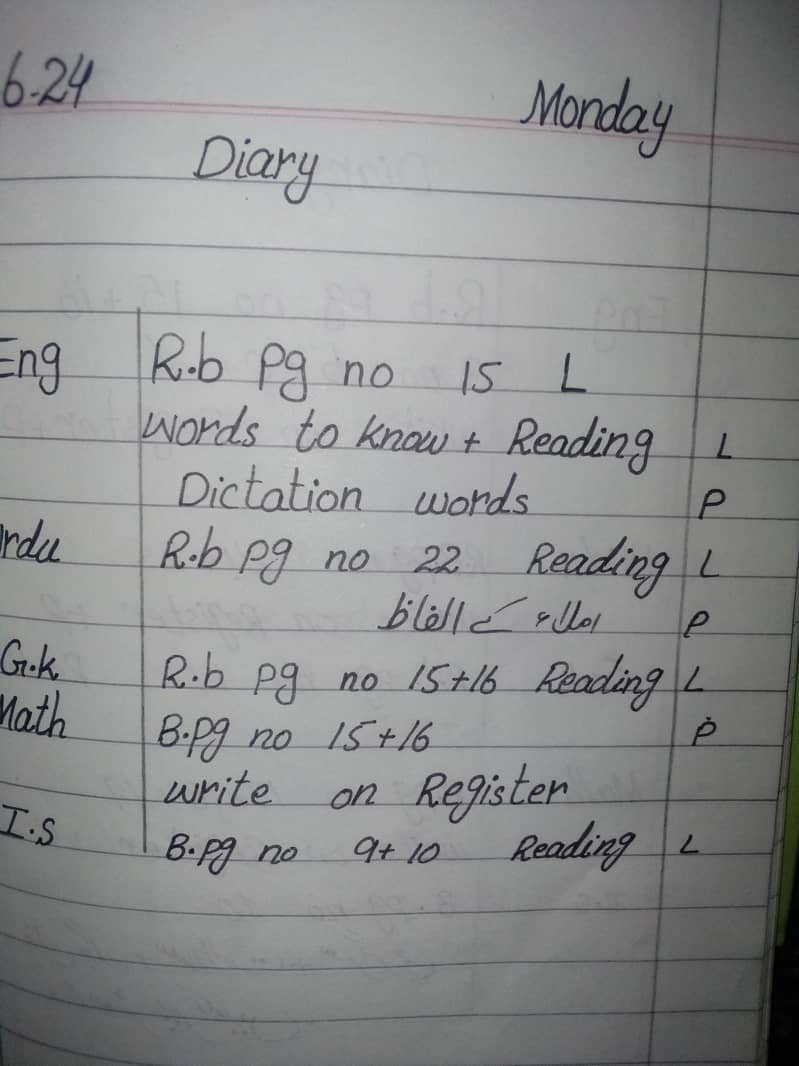 6-24 Monday
Diary
Eng R.b Pg no 15 L
words to know + Reading L
Dictation words P
Urdu R.b pg no 22 Reading L
املاء کے الفاظ P
G.k R.b pg no 15+16 Reading L
Math B.pg no 15+16 P
write on Register
I.S B.pg no 9+10 Reading L